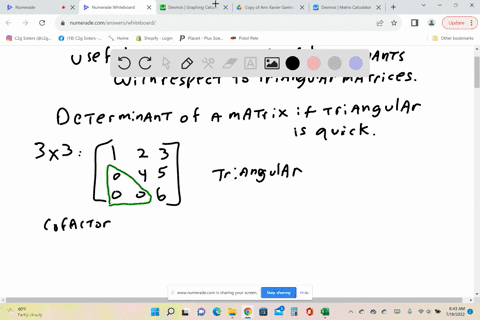 Numerade
Numerade Whiteboard
Desmos | Graphing Calcu
Copy of Ann Xavier Gantn
Desmos | Matrix Calculator
numerade.com/answers/whiteboard/
Update
C2g Sisters (@c2g...
(18) C2g Sisters -...
Home
Shopify - Login
Placeit - Plus Size...
Pistol Pete
Other bookmarks
WITH RESPECT TO TRIANGULAR MATRICES.
DETERMINANT OF A MATRIX if TRIANGULAR
is quick.
3x3: 1 2 3
0 4 5 TriANGULAR
0 0 6
COFACTOR
www.numerade.com is sharing your screen.
Stop sharing
Hide
60°F
Partly cloudy
6:43 AM
7/19/2022